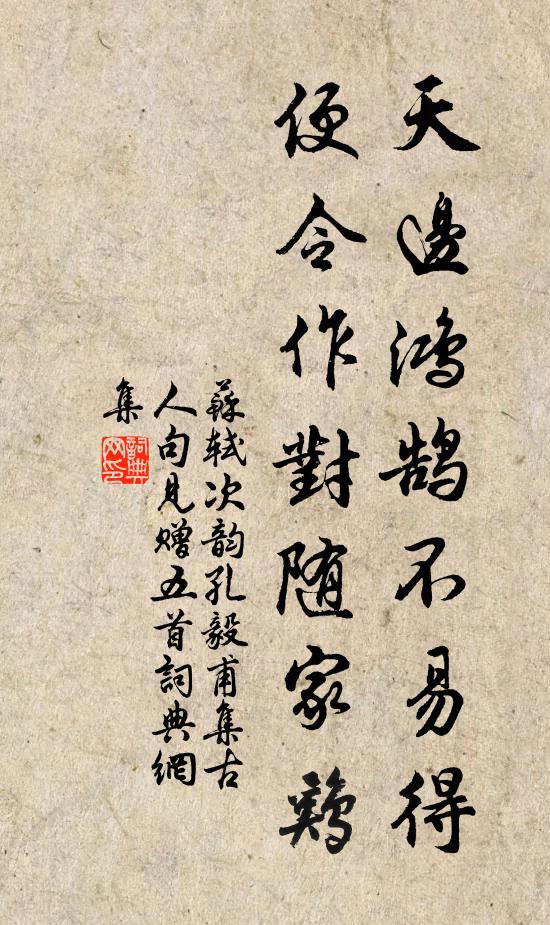 天邊鴻鵠不易得
便令作對随家鷄
蘇軾次韵孔毅甫集古
人句見贈五首詞典網
集
詞典
网印